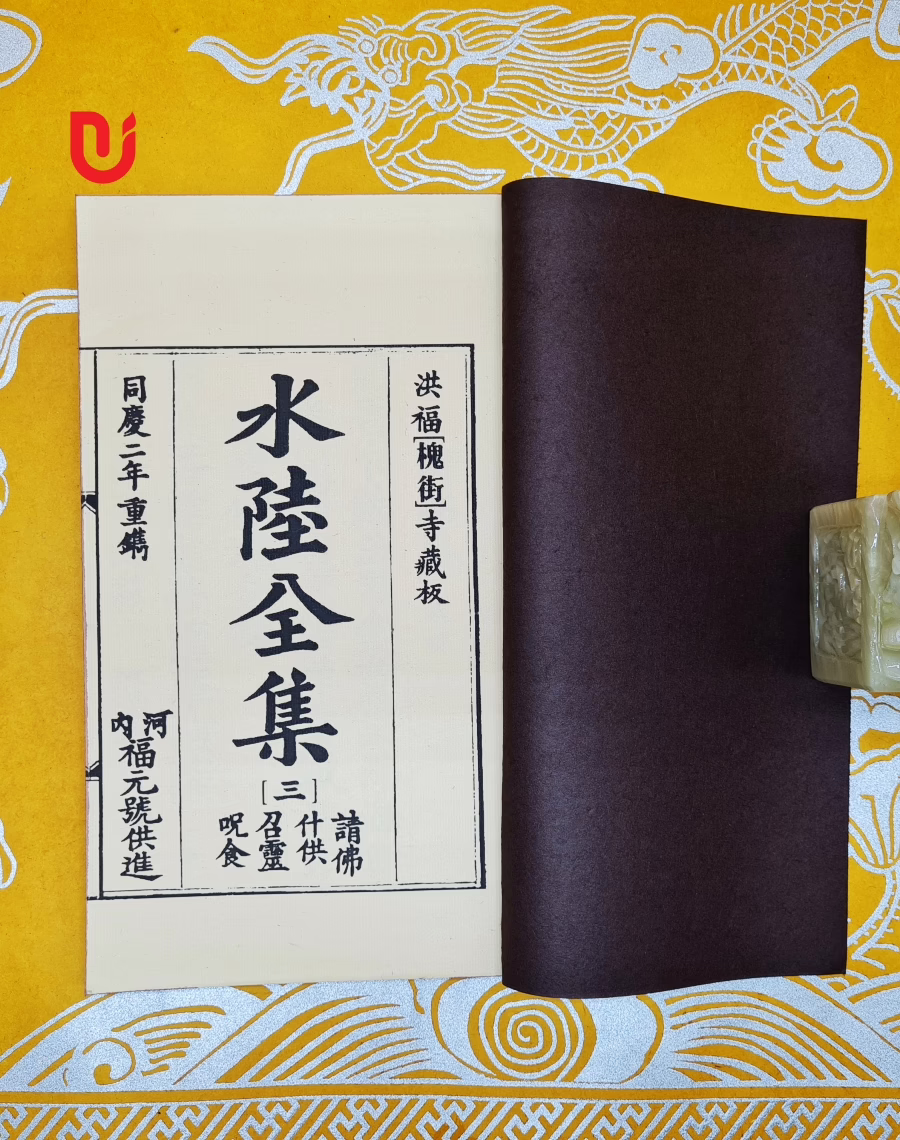 洪福[槐街]寺藏板
水陸全集
[三]
請佛
什供
召靈
呪食
同慶二年重鐫
河內福元號供進